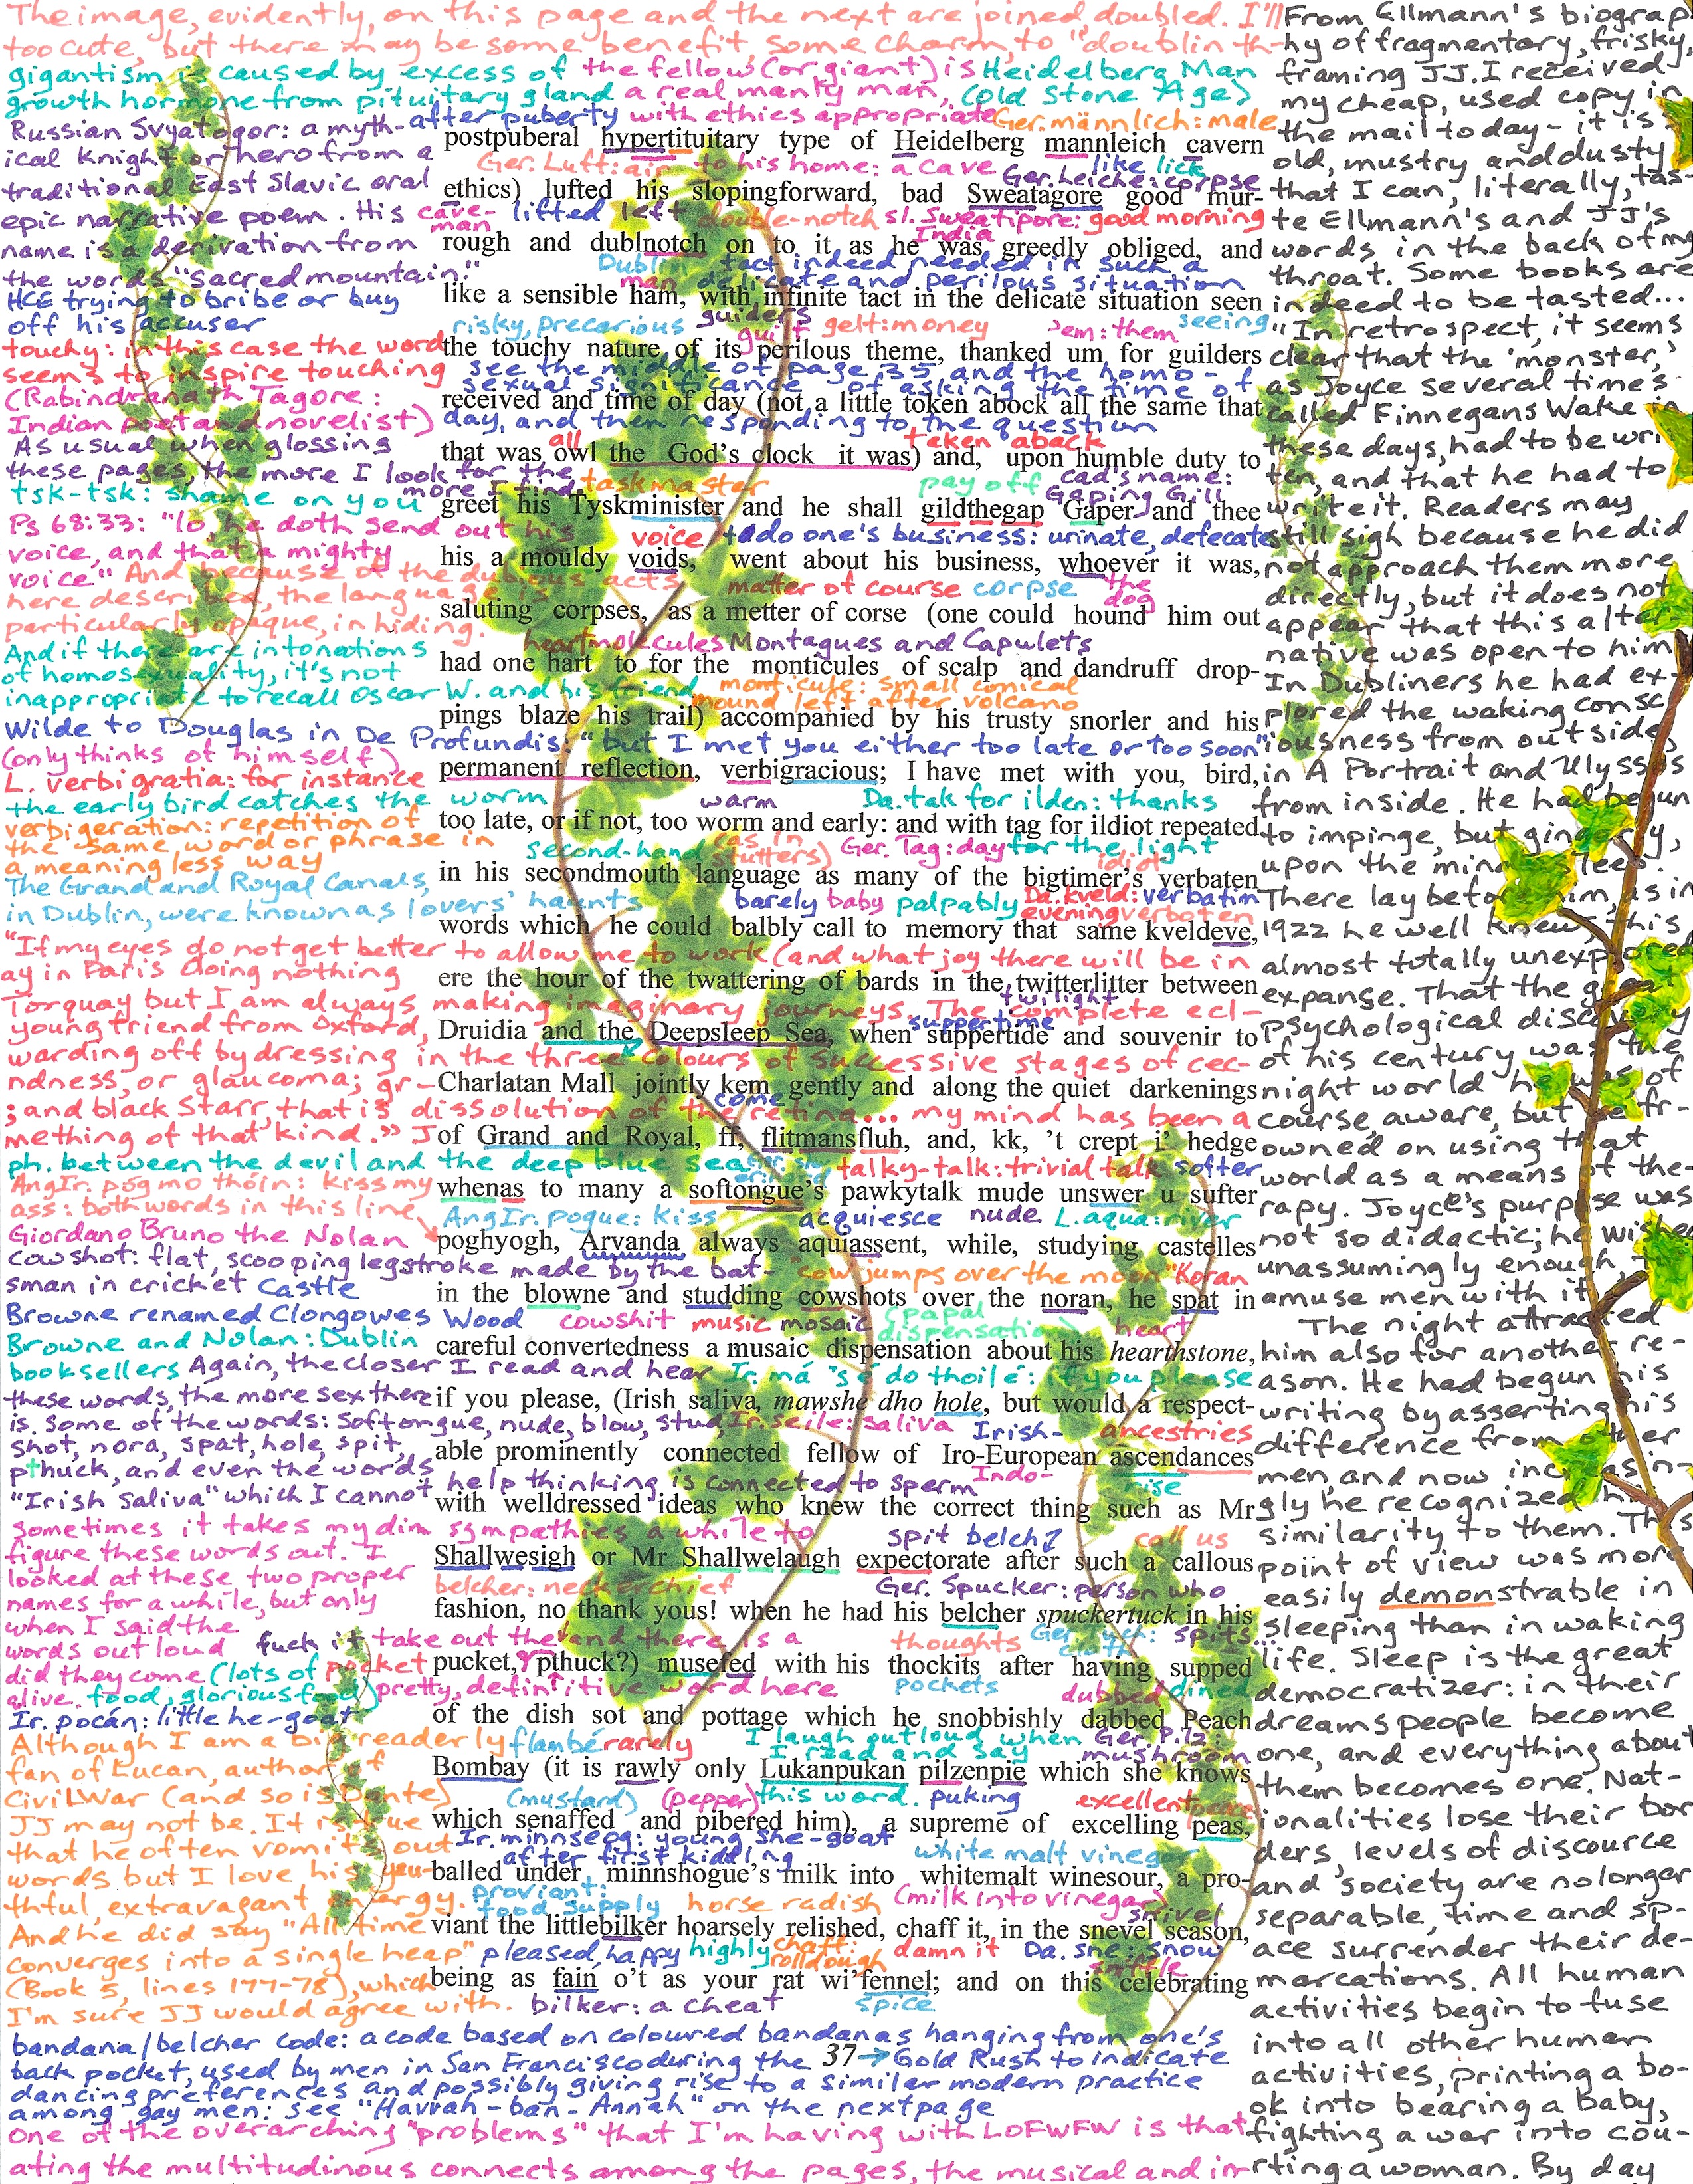 The image, evidently, on this page and the next are joined, doubled. I'll
too cute, but there may be some benefit, some charm, to "doublin th-
gigantism is caused by excess of the fellow (or giant) is Heidelberg Man
growth hormone from pituitary gland a real manly man, (Old Stone Age)
after puberty with ethics appropriate Ger. männlich: male
Russian Svyatogor: a myth-
ical knight or hero from a
traditional East Slavic oral
epic narrative poem. His
name is a derivation from
the words "sacred mountain."
HCE trying to bribe or buy
off his accuser
touchy: in this case the word
seems to inspire touching
(Rabindranath Tagore:
Indian poet and novelist)
As usual when glossing
these pages, the more I look for the
more I find
tsk-tsk: shame on you
Ps 68:33: "lo, he doth send out his
voice, and that a mighty
voice" And because of the dubious acts
here described, the language is
particularly opaque, in hiding.
And if there are intonations
of homosexuality, it's not
inappropriate to recall Oscar W. and his friend
Wilde to Douglas in De Profundis: "but I met you either too late or too soon"
(only thinks of himself)
L. verbi gratia: for instance
the early bird catches the worm
verbigeration: repetition of
the same word or phrase in
a meaningless way
The Grand and Royal Canals,
in Dublin, were known as lovers' haunts
"If my eyes do not get better to allow me to work (and what joy there will be in
ay in Paris doing nothing
Torquay but I am always making imaginary journeys. The complete ecl-
young friend from Oxford,
warding off by dressing in the three colours of successive stages of cec-
ndness, or glaucoma; gr-
; and black Starr, that is dissolution of the retina... my mind has been a
mething of that kind." J
ph. between the devil and the deep blue sea
AngIr. póg mo thóin: kiss my
ass: both words in this line
Giordano Bruno the Nolan
cowshot: flat, scooping legstroke made by the bat-
sman in cricket Castle
Browne renamed Clongowes Wood
Browne and Nolan: Dublin
booksellers Again, the closer I read and hear
these words, the more sex there
is. Some of the words: softongue, nude, blow, stud,
shot, nora, spat, hole, spit,
pthuck, and even the words
"Irish Saliva" which I cannot help thinking is connected to sperm
sometimes it takes my dim sympathies a while to
figure these words out. I
looked at these two proper
names for a while, but only
when I said the
words out loud
did they come (lots of
alive. food, glorious food)
Ir. pocán: little he-goat
Although I am a big readerly
fan of Lucan, author of
Civil War (and so is Dante)
JJ may not be. It is true
that he often vomits out
words but I love his you-
thful, extravagant energy.
And he did say "All time
converges into a single heap"
(Book 5, lines 177-78), which
I'm sure JJ would agree with.
postpuberal hypertituitary type of Heidelberg mannleich cavern
Ger. Luft: air to his home: a cave like lick
Ger. Leiche: corpse
ethics) lufted his slopingforward, bad Sweatagore good mur-
cave-man lifted left double-notch sl. Sweatipore: India good morning
rough and dublnotch on to it as he was greedly obliged, and
Dublin man tact indeed needed in such a
delicate and perilous situation
like a sensible ham, with infinite tact in the delicate situation seen
risky, precarious guiders guilt gelt: money 'em: them seeing
the touchy nature of its perilous theme, thanked um for guilders
see the middle of page 35 and the homo-
sexual significance of asking the time of
received and time of day (not a little token abock all the same that
day, and then responding to the question
all taken aback
that was owl the God's clock it was) and, upon humble duty to
taskmaster pay off cad's name: Gaping Gill
greet his Tyskminister and he shall gildthegap Gaper and thee
voice to do one's business: urinate, defecate
his a mouldy voids, went about his business, whoever it was,
matter of course corpse the dog
saluting corpses, as a metter of corse (one could hound him out
heart molecules Montagues and Capulets
had one hart to for the monticules of scalp and dandruff drop-
monticule: small conical
mound left after volcano
pings blaze his trail) accompanied by his trusty snorler and his
permanent reflection, verbigracious; I have met with you, bird,
warm Da. tak for ilden: thanks
too late, or if not, too worm and early: and with tag for ildiot repeated
second-hand (as in stutters) Ger. Tag: day for the light idiot
in his secondmouth language as many of the bigtimer's verbaten
barely baby palpably Da. kveld: evening verbatim verboten
words which he could balbly call to memory that same kveldeve,
ere the hour of the twattering of bards in the twitterlitter between
twilight
suppertime
Druidia and the Deepsleep Sea, when suppertide and souvenir to
Charlatan Mall jointly kem gently and along the quiet darkenings
come
of Grand and Royal, ff, flitmansfluh, and, kk, 't crept i' hedge
talky-talk: trivial talk softer
whenas to many a softongue's pawkytalk mude unswer u sufter
AngIr. pogue: kiss acquiesce nude L. aqua: river
poghyogh, Arvanda always aquiassent, while, studying castelles
"cow jumps over the moon" Koran
in the blowne and studding cowshots over the noran, he spat in
cowshit music mosaic (papal dispensation) heart
careful convertedness a musaic dispensation about his hearthstone,
Ir. má 's é do thoilé: if you please
if you please, (Irish saliva, mawshe dho hole, but would a respect-
Ir. seile: saliva Irish- ancestries
able prominently connected fellow of Iro-European ascendances
Indo- rise
with welldressed ideas who knew the correct thing such as Mr
spit belch call us
Shallwesigh or Mr Shallwelaugh expectorate after such a callous
belcher: neckerchief Ger. Spucker: person who spits
fashion, no thank yous! when he had his belcher spuckertuck in his
fuck it take out the and there is a thoughts
pocket
pucket, pthuck?) musefed with his thockits after having supped
pretty, definitive word here pockets dubbed dined
of the dish sot and pottage which he snobbishly dabbed Peach
flambé rarely I laugh out loud when Ger. Pilz: mushroom
I read and say
Bombay (it is rawly only Lukanpukan pilzenpie which she knows
(mustard) (pepper) this word. puking excellent peace
which senaffed and pibered him), a supreme of excelling peas,
Ir. minnseog: young she-goat
after first kidding white malt vinegar
balled under minnshogue's milk into whitemalt winesour, a pro-
proviant: food supply horse radish (milk into vinegar) snivel
viant the littlebilker hoarsely relished, chaff it, in the snevel season,
pleased, happy highly chaff: rolldough damn it Da. sne: snow
sniffle
being as fain o't as your rat wi'fennel; and on this celebrating
bilker: a cheat spice
bandana/belcher code: a code based on coloured bandanas hanging from one's
back pocket, used by men in San Francisco during the 37 → Gold Rush to indicate
dancing preferences and possibly giving rise to a similar modern practice
among gay men: see "Havvah-ban-Annah" on the next page
One of the overarching "problems" that I'm having with LOFWFW is that
ating the multitudinous connects among the pages, the musical and in-
From Ellmann's biograp
hy of fragmentary, frisky,
framing JJ. I received
my cheap, used copy in
the mail today - it is
old, mustry and dusty
that I can, literally, tas-
te Ellmann's and JJ's
words in the back of my
throat. Some books are
indeed to be tasted...
"In retrospect, it seems
clear that the 'monster,'
as Joyce several times
called Finnegans Wake in
these days, had to be writ
ten, and that he had to
write it. Readers may
still sigh because he did
not approach them more
directly, but it does not
appear that this alter-
native was open to him
In Dubliners he had ex-
plored the waking consc
iousness from outside,
in A Portrait and Ulysses
from inside. He had begun
to impinge, but gingerly,
upon the mind asleep.
There lay before him, as in
1922 he well knew, this
almost totally unexplored
expanse. That the great
psychological discovery
of his century was the
night world he was of
course, aware, but he fr-
owned on using that
world as a means of the-
rapy. Joyce's purpose was
not so didactic; he wished
unassumingly enough, to
amuse men with it.
The night attracted
him also for another re-
ason. He had begun his
writing by asserting his
difference from other
men, and now increasin-
gly he recognized his
similarity to them. This
point of view was more
easily demonstrable in
sleeping than in waking
life. Sleep is the great
democratizer: in their
dreams people become
one, and everything about
them becomes one. Nat-
ionalities lose their bor
ders, levels of discource
and society are no longer
separable, time and sp-
ace surrender their de-
marcations. All human
activities begin to fuse
into all other human
activities, printing a bo-
ok into bearing a baby,
fighting a war into cou-
rting a woman. By day